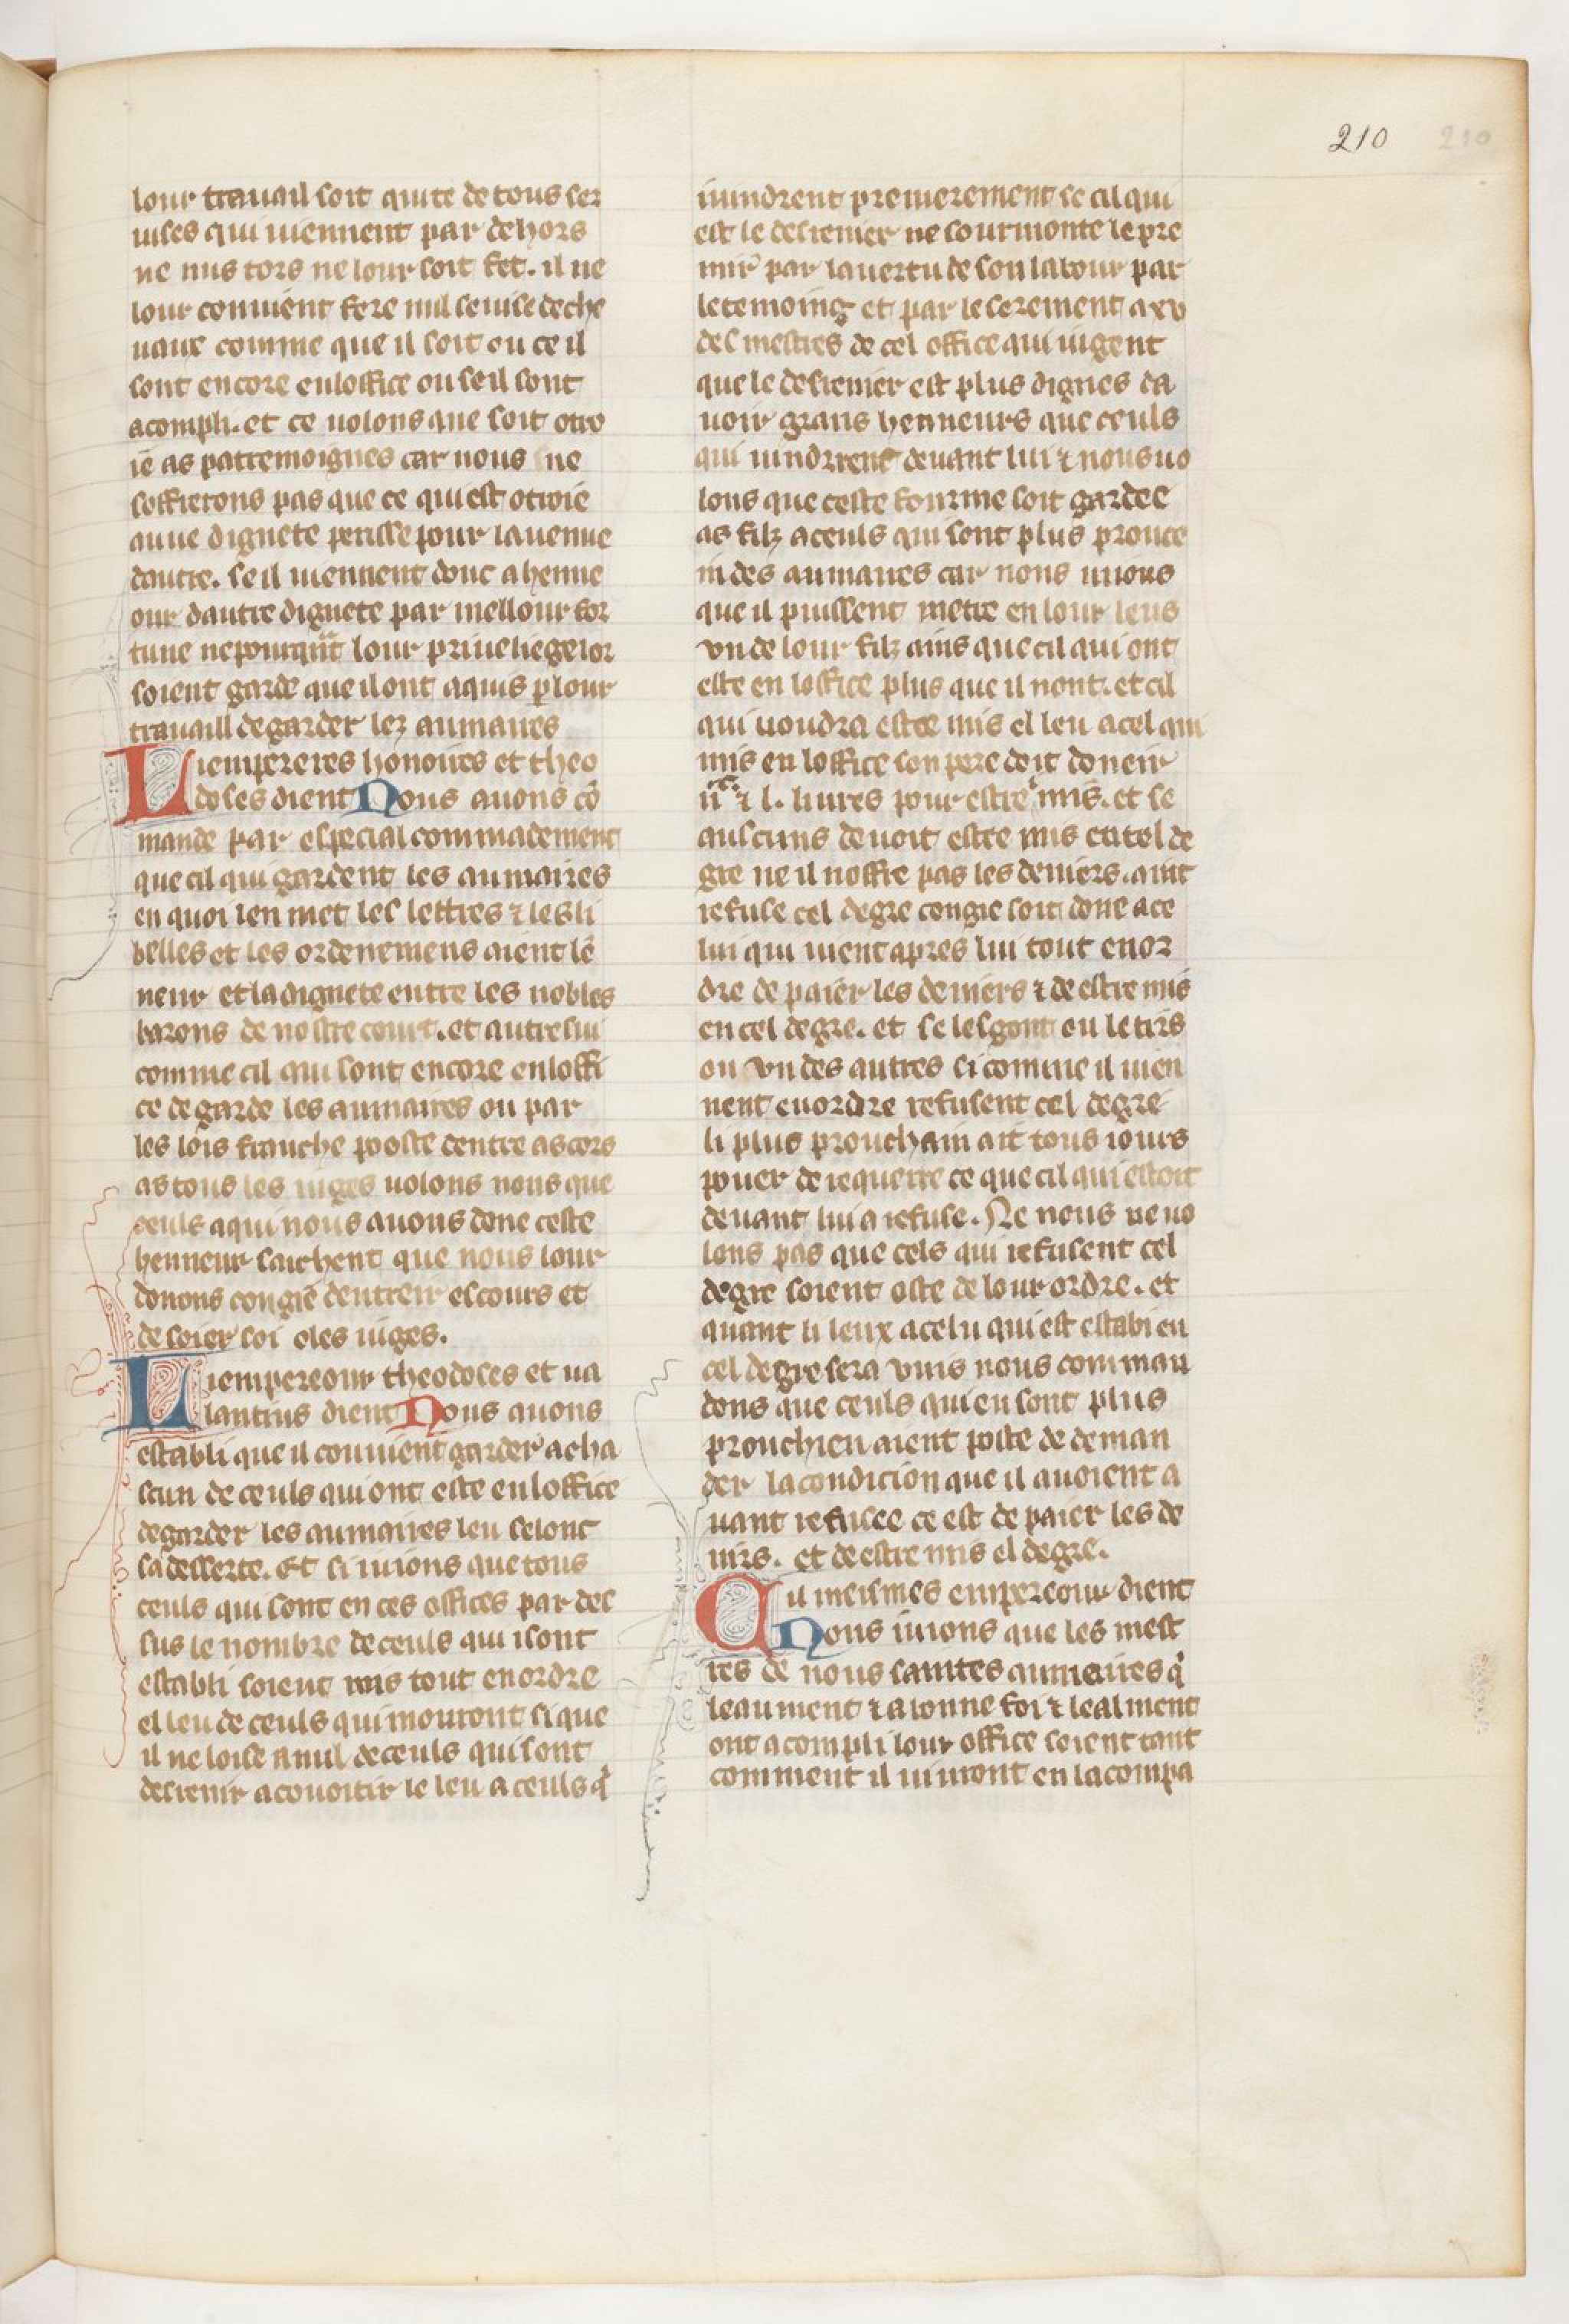 210
lour trauail soit quite de tous ser
uises qui uiennent par dehors
ne nus tors ne lour soit fet. il ne
lour conuient fere nul seruise de che
uaux comme que il soit ou ce il
sont encore en loffice ou se il sont
acompli. et ce uolons que soit otro
ie as pattemoignes car nous ne
soffrerons pas que ce qui est otroie
a une dignete perisse pour la uenue
dautre. se il uiennent donc a henne
our dautre dignete par mellour for
tune nepourqnt lour priueliege lor
soient garde que il ont aquis p lour
trauaill de garder lez aumaires
Li empereres honoires et theo
doses dient Nous auons cō
mande par especial commadement
que cil qui gardent les aumaires
en quoi len met les lettres ⁊ les li
belles et les ordenemens aient lē
neur et la dignete entre les nobles
barons de nostre court. et autresiu
comme cil qui sont encore en loffi
ce de garde les aumaires ou par
les lois franche poste dentre as cors
as tous les iuges uolons nous que
ceuls a qui nous auons done ceste
henneur saichent que nous lour
donons congie dentreir es cours et
de soier soi o les iuges.
Li empereour theodoses et ua
lantins dient Nous auons
establi que il conuient garder a cha
scun de ceuls qui ont este en loffice
de garder les aumaires leu selonc
sa desserte. Et si uions que tous
ceuls qui sont en ces offices par des
sus le nombre de ceuls qui i sont
establi soient mis tout en ordre
el leu de ceuls qui mouront si que
il ne loise a nul de ceuls qui sont
desrenir a couoitir le leu a ceuls q̄
uindrent premierement se cil qui
est le desrenier ne sourmonte le pre
mir par la uertu de son labour par
le temoing et par le serement a xv
des mestres de cel office qui uigent
que le desrenier est plus dignes da
uoir grans henneurs que ceuls
qui uindrrent deuant lui ⁊ nous uo
lons que ceste fourme soit gardee
as filz a ceuls qui sont plus prouce
in des aumaires car nous uuons
que il puissent metre en lour leus
vn de lour filz ains que cil qui ont
este en loffice plus que il nont. et cil
qui uoudra estre mis el leu a cel qui
mis en loffice son pere doit doneir
iic ⁊ l. liures pour estre mis. et se
auscuns deuoit estre mis en tel de
gre ne il noffre pas les deniers. aint
refuse cel degre congie soit done a ce
lui qui uient apres lui tout en or
dre de paier les deniers ⁊ de estre mis
en cel degre. et se lesgont ou le tirs
ou vn des autres si comme il uien
nent en ordre refusent cel degre
li plus prouchain ait tous iours
pouer de requerre ce que cil qui estoit
deuant lui a refuse. Ne nous ne uo
lons pas que cels qui refusent cel
degre soient oste de lour ordre. et
quant li leux a celu qui est establi en
cel degre sera vuis nous comman
dons que ceuls qui en sont plus
prouchien aient poste de deman
der la condicion que il auoient a
uant refusee ce est de paier les de
nirs. et de estre mis el degre.
Cil meismes empereour dient
Nous iuions que les mest
res de nous saintes aumaires q̄
leaument ⁊ a bonne foi ⁊ lealment
ont acompli lour office soient tant
comment il uiuront en la compa